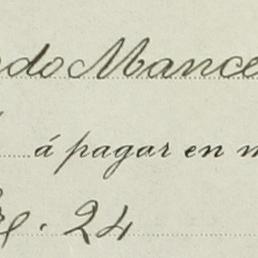 ndo Mance
á pagar en m
24